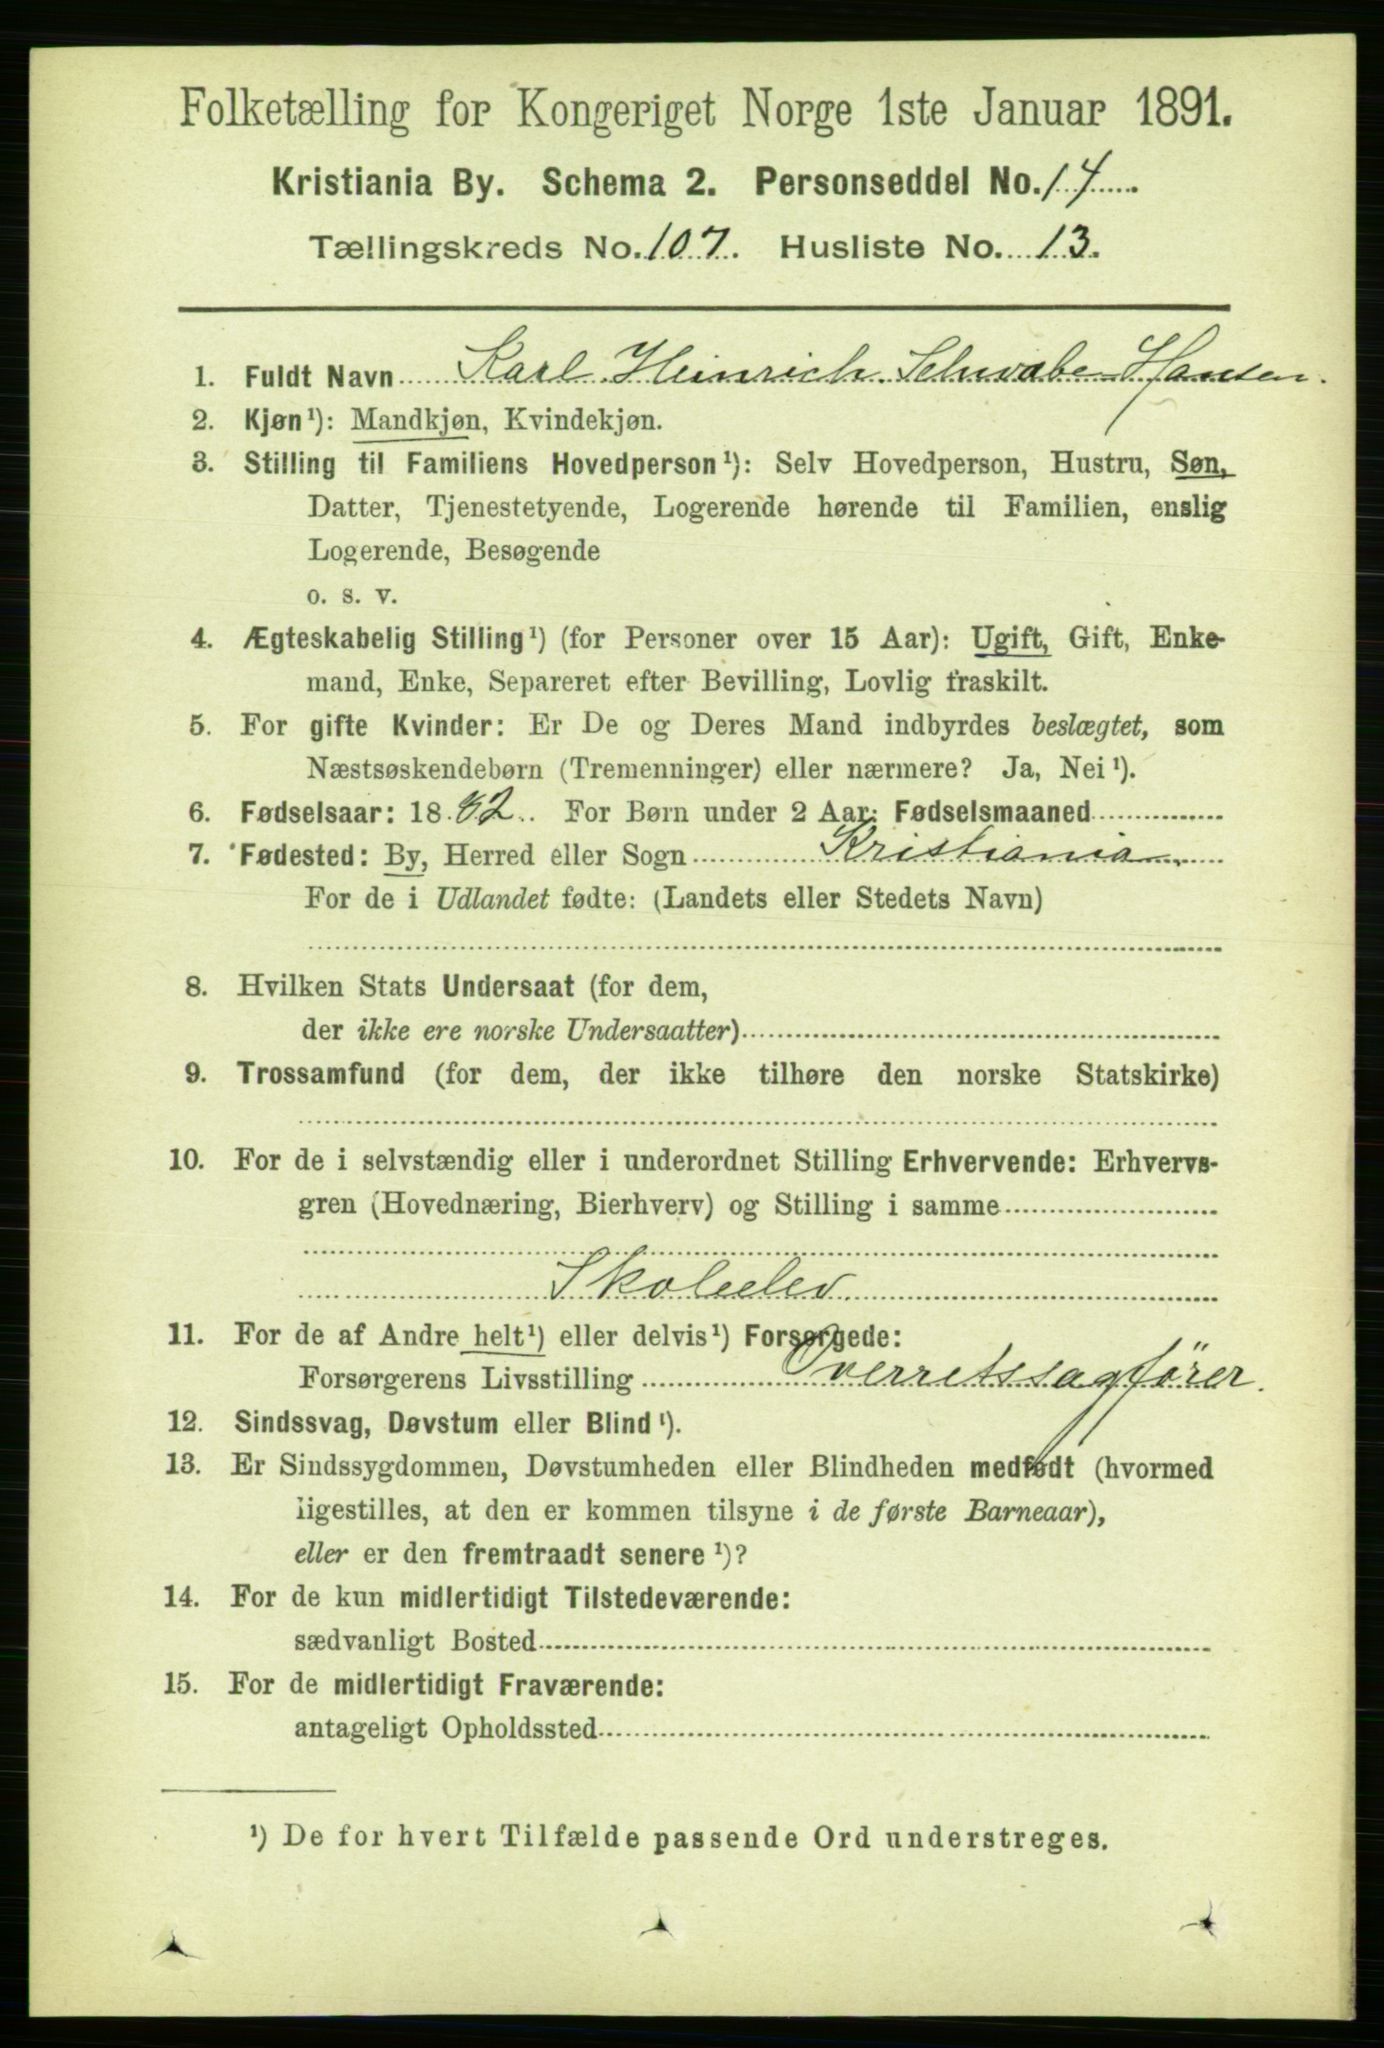 Folketælling for Kongeriget Norge 1ste Januar 1891.
Kristiania By. Schema 2. Personseddel No. 14
Tællingskreds No. 107. Husliste No. 13.
1. Fuldt Navn Karl Heinrich Schwabe Hansen.
2. Kjøn¹): Mandkjøn, Kvindekjøn.
3. Stilling til Familiens Hovedperson¹): Selv Hovedperson, Hustru, Søn,
Datter, Tjenestetyende, Logerende hørende til Familien, enslig
Logerende, Besøgende
o. s. v.
4. Ægteskabelig Stilling¹) (for Personer over 15 Aar): Ugift, Gift, Enke-
mand, Enke, Separeret efter Bevilling, Lovlig fraskilt.
5. For gifte Kvinder: Er De og Deres Mand indbyrdes beslægtet, som
Næstsøskendebørn (Tremenninger) eller nærmere? Ja, Nei¹).
6. Fødselsaar: 1882. For Børn under 2 Aar: Fødselsmaaned
7. Fødested: By, Herred eller Sogn Kristiania
For de i Udlandet fødte: (Landets eller Stedets Navn)
8. Hvilken Stats Undersaat (for dem,
der ikke ere norske Undersaatter)
9. Trossamfund (for dem, der ikke tilhøre den norske Statskirke)
10. For de i selvstændig eller i underordnet Stilling Erhvervende: Erhvervs-
gren (Hovednæring, Bierhverv) og Stilling i samme
Skoleelev.
11. For de af Andre helt¹) eller delvis¹) Forsørgede:
Forsørgerens Livsstilling Overretssagfører.
12. Sindssvag, Døvstum eller Blind¹).
13. Er Sindssygdommen, Døvstumheden eller Blindheden medfødt (hvormed
ligestilles, at den er kommen tilsyne i de første Barneaar),
eller er den fremtraadt senere¹)?
14. For de kun midlertidigt Tilstedeværende:
sædvanligt Bosted
15. For de midlertidigt Fraværende:
antageligt Opholdssted
¹) De for hvert Tilfælde passende Ord understreges.